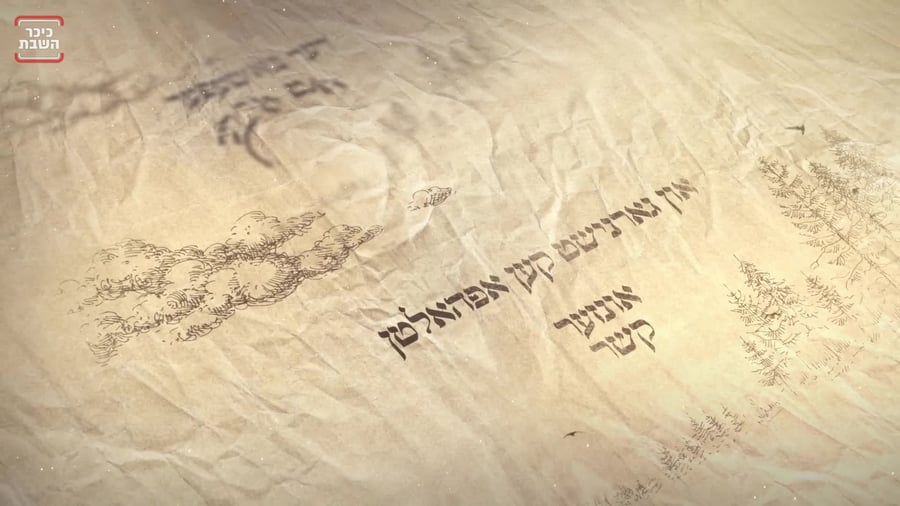 כיכר
השבת
און גארנישט קען אפהאלטן
אונזער
קשר